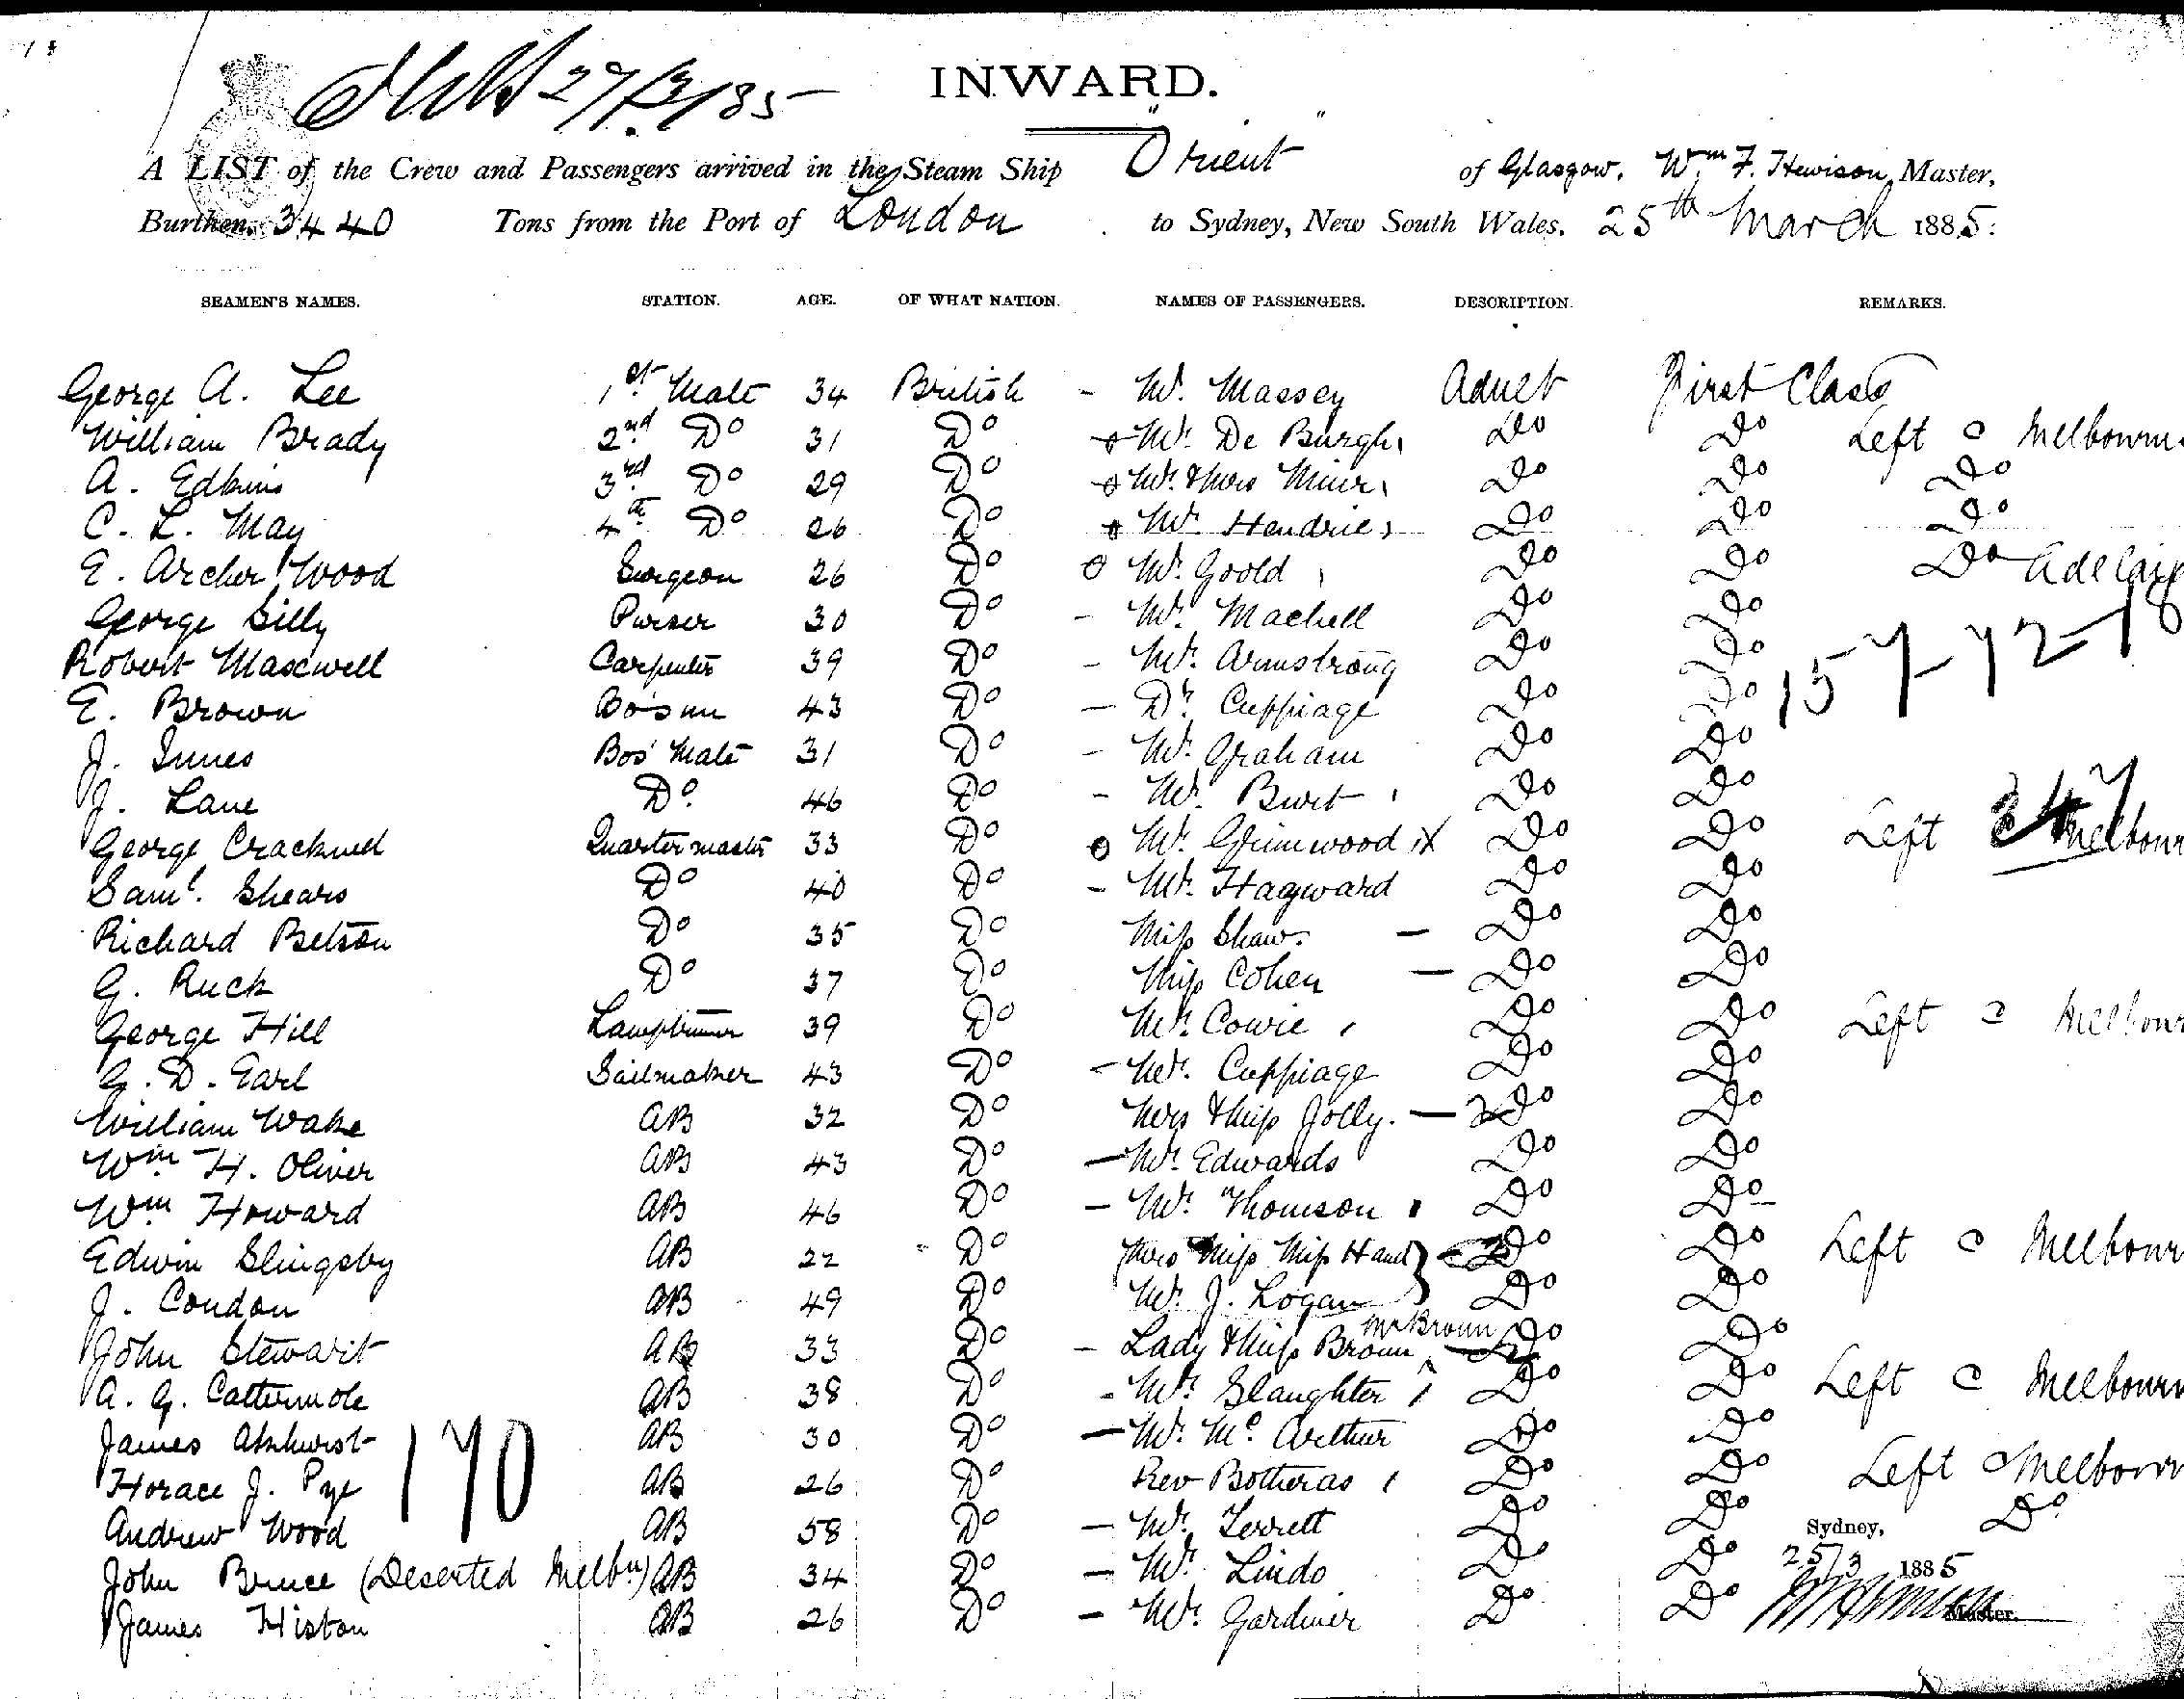 27/3/85
INWARD.
A LIST of the Crew and Passengers arrived in the Steam Ship "Orient" of Glasgow, Wm F. Hewison, Master,
Burthen 3440 Tons from the Port of London to Sydney, New South Wales, 25th March 1885:
SEAMEN'S NAMES. STATION. AGE. OF WHAT NATION. NAMES OF PASSENGERS. DESCRIPTION. REMARKS.
George A. Lee 1st Mate 34 British - Mr. Massey Adult First Class
William Brady 2nd Do 31 Do Mr. De Burgh Do Do Left @ Melbourne
A. Edkins 3rd Do 29 Do Mr. & Mrs Muir Do Do Do
C. L. May 4th Do 26 Do Mr. Hendrie Do Do Do
E. Archer Wood Surgeon 26 Do Mr. Goold Do Do Do Adelaide
George Silly Purser 30 Do - Mr. Machell Do Do
Robert Maxwell Carpenter 39 Do - Mr. Armstrong Do Do
157-72-18
E. Brown Bo'sun 43 Do - Dr. Cuppiage Do Do
J. Innes Bos' Mate 31 Do - Mr. Graham Do Do
J. Lane Do. 46 Do - Mr. Burt Do Do
247
George Cracknell Quartermaster 33 Do Mr. Grimwood X Do Do Left Melbour
Saml. Shears Do 40 Do - Mr. Hagward Do Do
Richard Betson Do 35 Do Miss Shaw. - Do Do
G. Ruck Do 37 Do Miss Cohen - Do Do
George Hill Lamptrimmer 39 Do Mr. Cowie Do Do Left @ Melbour
G. D. Earl Sailmaker 43 Do - Mr. Cuppiage Do Do
William Wake AB 32 Do Mrs & Miss Jolly. - 2 Do Do
Wm H. Oliver AB 43 Do - Mr. Edwards Do Do
Wm Howard AB 46 Do - Mr. Thomson Do Do
Edwin Slingsby AB 22 Do Mrs Miss Miss Hand Do Do Left @ Melbour
J. Condon AB 49 Do Mr. J. Logan Do Do
Mr Broun
John Stewart AB 33 Do - Lady & Miss Broun Do Do
A. G. Cattermole AB 38 Do - Mr. Slaughter Do Do Left @ Melbourn
James Akhurst AB 30 Do - Mr. Mc Arthur Do Do
170
Horace J. Pye AB 26 Do Rev Botheras Do Do Left @ Melbourn
Andrew Wood AB 58 Do - Mr. Terrett Do Do Do
Sydney,
John Bruce (Deserted Melbn) AB 34 Do - Mr. Lindo Do Do 25/3 1885
James Histon AB 26 Do - Mr. Gardiner Do Do
Master.